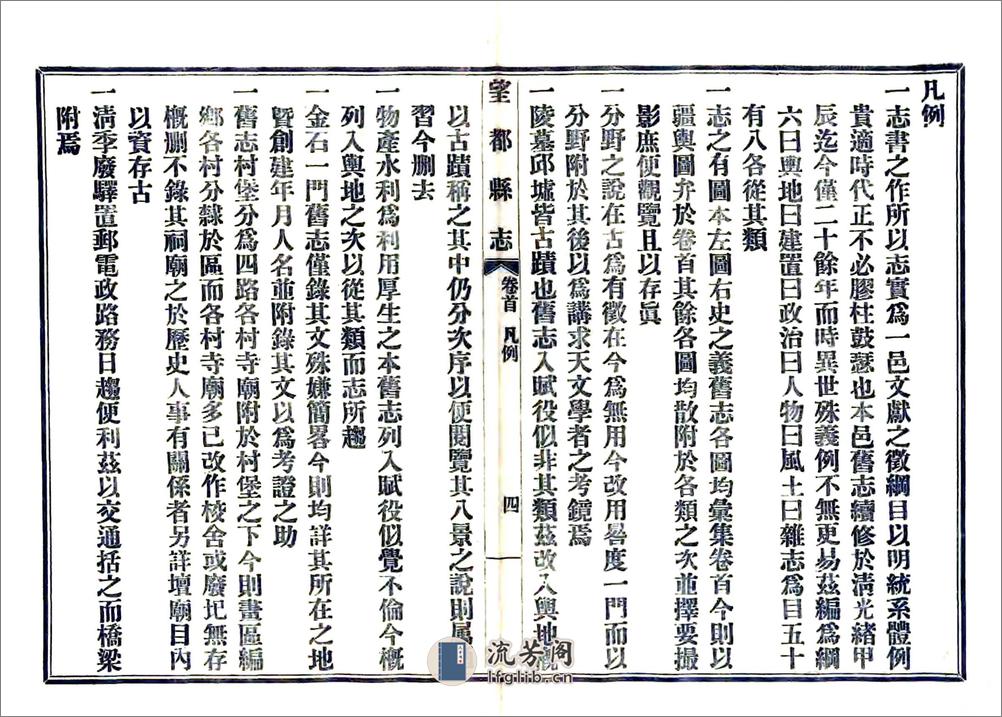 凡例
一志書之作所以志實爲一邑文獻之徵綱目以明統系體例
貴適時代正不必膠柱鼓瑟也本邑舊志續修於淸光緒甲
辰迄今僅二十餘年而時異世殊義例不無更易茲編爲綱
六曰輿地曰建置曰政治曰人物曰風土曰雜志爲目五十
有八各從其類
一志之有圖本左圖右史之義舊志各圖均彙集卷首今則以
疆輿圖弁於卷首其餘各圖均散附於各類之次並擇要撮
影庶便觀覽且以存眞
一分野之說在古爲有徵在今爲無用今改用晷度一門而以
分野附於其後以爲講求天文學者之考鏡焉
一陵墓邱墟皆古蹟也舊志入賦役似非其類茲改入輿地槪
望都縣志
卷首 凡例
四
以古蹟稱之其中仍分次序以便閱覽其八景之說則属
習今删去
一物產水利爲利用厚生之本舊志列入賦役似覺不倫今槪
列入輿地之次以從其類而志所趨
一金石一門舊志僅錄其文殊嫌簡畧今則均詳其所在之地
曁創建年月人名並附錄其文以爲考證之助
一舊志村堡分爲四路各村寺廟附於村堡之下今則畫區編
鄉各村分隸於區而各村寺廟多已改作校舍或廢圮無存
槪删不錄其祠廟之於歷史人事有關係者另詳壇廟目內
以資存古
一淸季廢驛置郵電政路務日趨便利茲以交通括之而橋梁
附焉
流芳阁
lfglib.cn